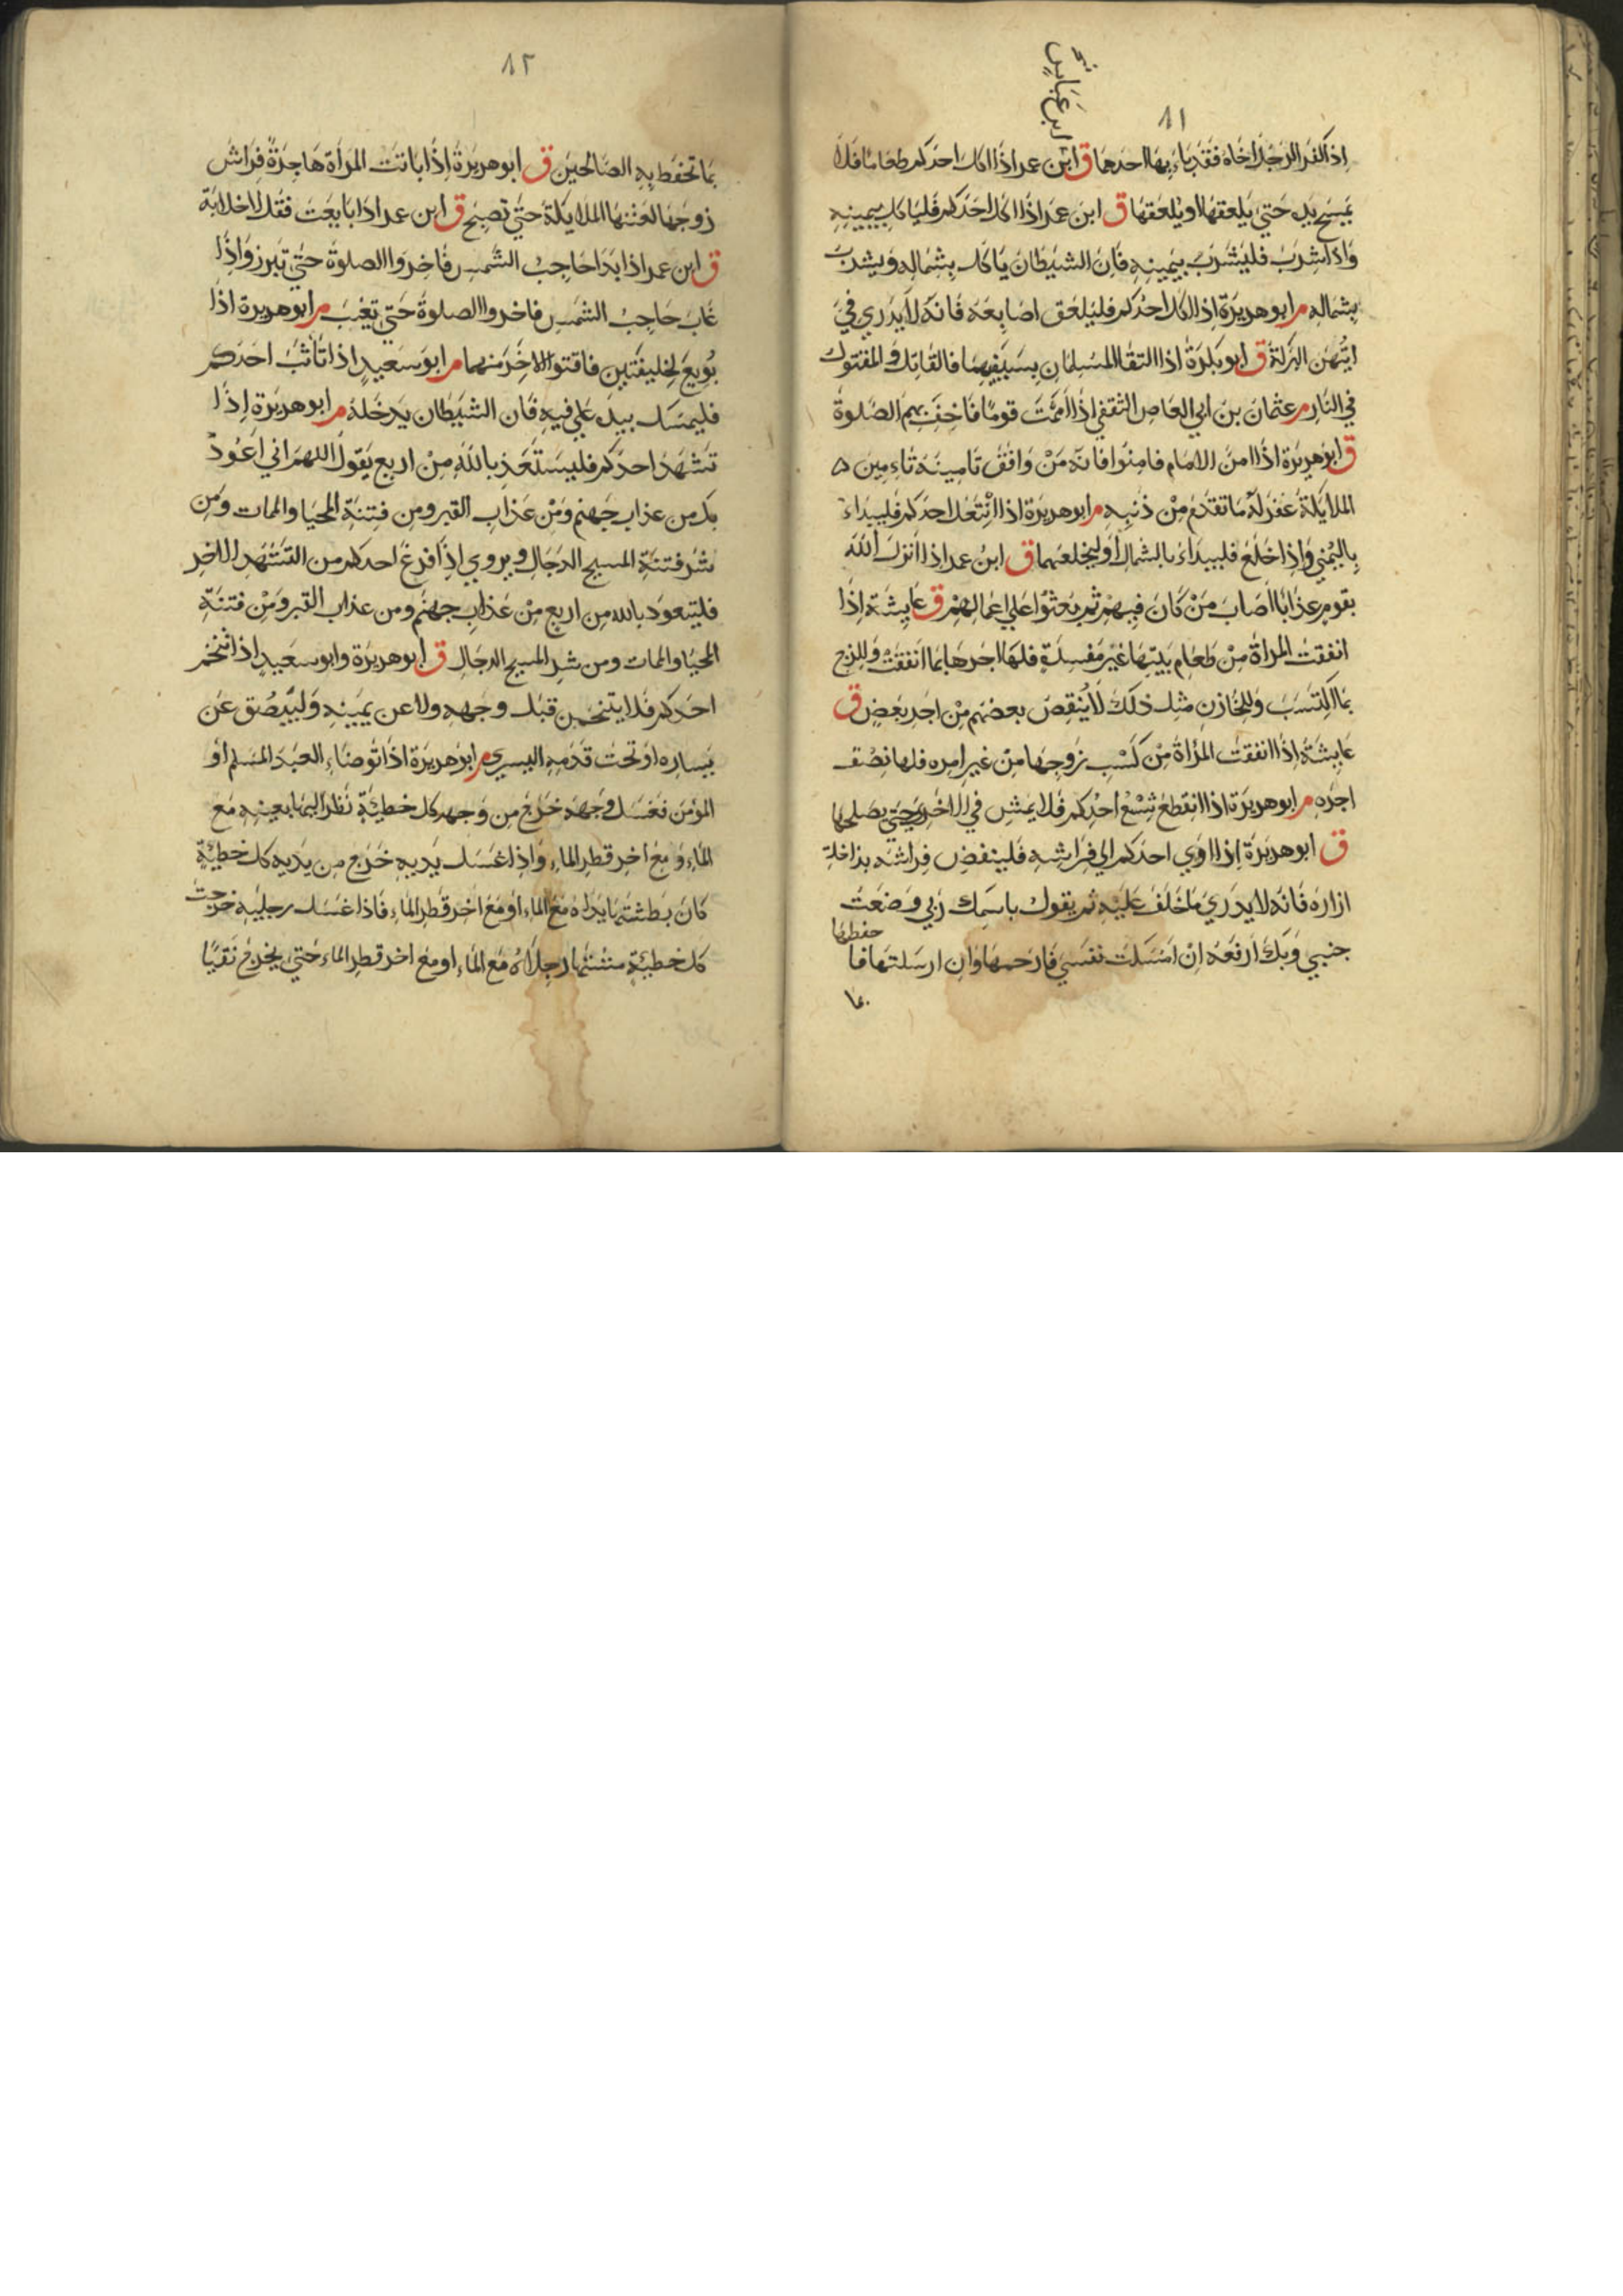 ٨١
ابن عباس
اذا كفر الرجل اخاه فقد باء بها احدهما ق ابن عمر اذا اكل احدكم طعاما فلا
يمسح يده حتى يلعقها او يلعقها ق ابن عمر اذا اكل احدكم فليأكل بيمينه
واذا شرب فليشرب بيمينه فان الشيطان يأكل بشماله ويشرب
بشماله م ابو هريرة اذا اكل احدكم فليلعق اصابعه فانه لا يدري في
ايتهن البركة ق ابو بكرة اذا التقا المسلمان بسيفيهما فالقاتل والمقتول
في النار م عثمان بن ابي العاص الثقفي اذا اممت قوما فاخف بهم الصلوة
ق ابو هريرة اذا امن الامام فامنوا فانه من وافق تامينه تاءمين ه
الملايكة غفر له ما تقدم من ذنبه م ابو هريرة اذا انتعل احدكم فليبداء
باليمني واذا خلع فليبداء بالشمال او ليخلعهما ق ابن عمر اذا انزل الله
بقوم عذابا اصاب من كان فيهم ثم بعثوا علي اعمالهم ق عايشة اذا
انفقت المراة من طعام بيتها غير مفسدة فلها اجرها بما انفقت وللزوج
بما اكتسب وللخازن مثل ذلك لا ينقص بعضهم من اجر بعض ق
عايشة اذا انفقت المراة من كسب زوجها من غير امره فلها نصف
اجره م ابو هريرة اذا انقطع شسع احدكم فلا يمش في الاخري حتى يصلحها
ق ابو هريرة اذا اوي احدكم الي فراشه فلينفض فراشه بداخلة
ازاره فانه لا يدري ما خلف عليه ثم يقول باسمك ربي وضعت
جنبي وبك ارفعه ان امسكت نفسي فارحمها وان ارسلتها فا
حفظها
بما
٨٢
بما تحفظ به الصالحين ق ابو هريرة اذا باتت المراة هاجرة فراش
زوجها لعنتها الملايكة حتى تصبح ق ابن عمر اذا بايعت فقل لا خلابة
ق ابن عمر اذا بدا حاجب الشمس فاخروا الصلوة حتى تبرز واذا
غاب حاجب الشمس فاخروا الصلوة حتى تغيب م ابو هريرة اذا
بويع لخليفتين فاقتوا الاخر منهما م ابو سعيد اذا تاثب احدكم
فليمسك بيده علي فيه فان الشيطان يدخله م ابو هريرة اذا
تشهد احدكم فليستعذ بالله من اربع يقول اللهم اني اعوذ
بك من عذاب جهنم ومن عذاب القبر ومن فتنة المحيا والممات ومن
شر فتنة المسيح الدجال ويروي اذا فرغ احدكم من التشهد الاخر
فليتعوذ بالله من اربع من عذاب جهنم ومن عذاب القبر ومن فتنة
المحيا والممات ومن شر المسيح الدجال ق ابو هريرة وابو سعيد اذا تنخم
احدكم فلا يتنخمن قبل وجهه ولا عن يمينه وليبصق عن
يساره او تحت قدمه اليسري م ابو هريرة اذا توضاء العبد المسلم او
المؤمن فغسل وجهه خرج من وجهه كل خطيئة نظر اليها بعينه مع
الماء او مع اخر قطر الماء واذا غسل يديه خرج من يديه كل خطيئة
كان بطشتها يداه مع الماء او مع اخر قطر الماء فاذا غسل رجليه خرجت
كل خطيئة مشتها رجلاه مع الماء او مع اخر قطر الماء حتى يخرج نقيا